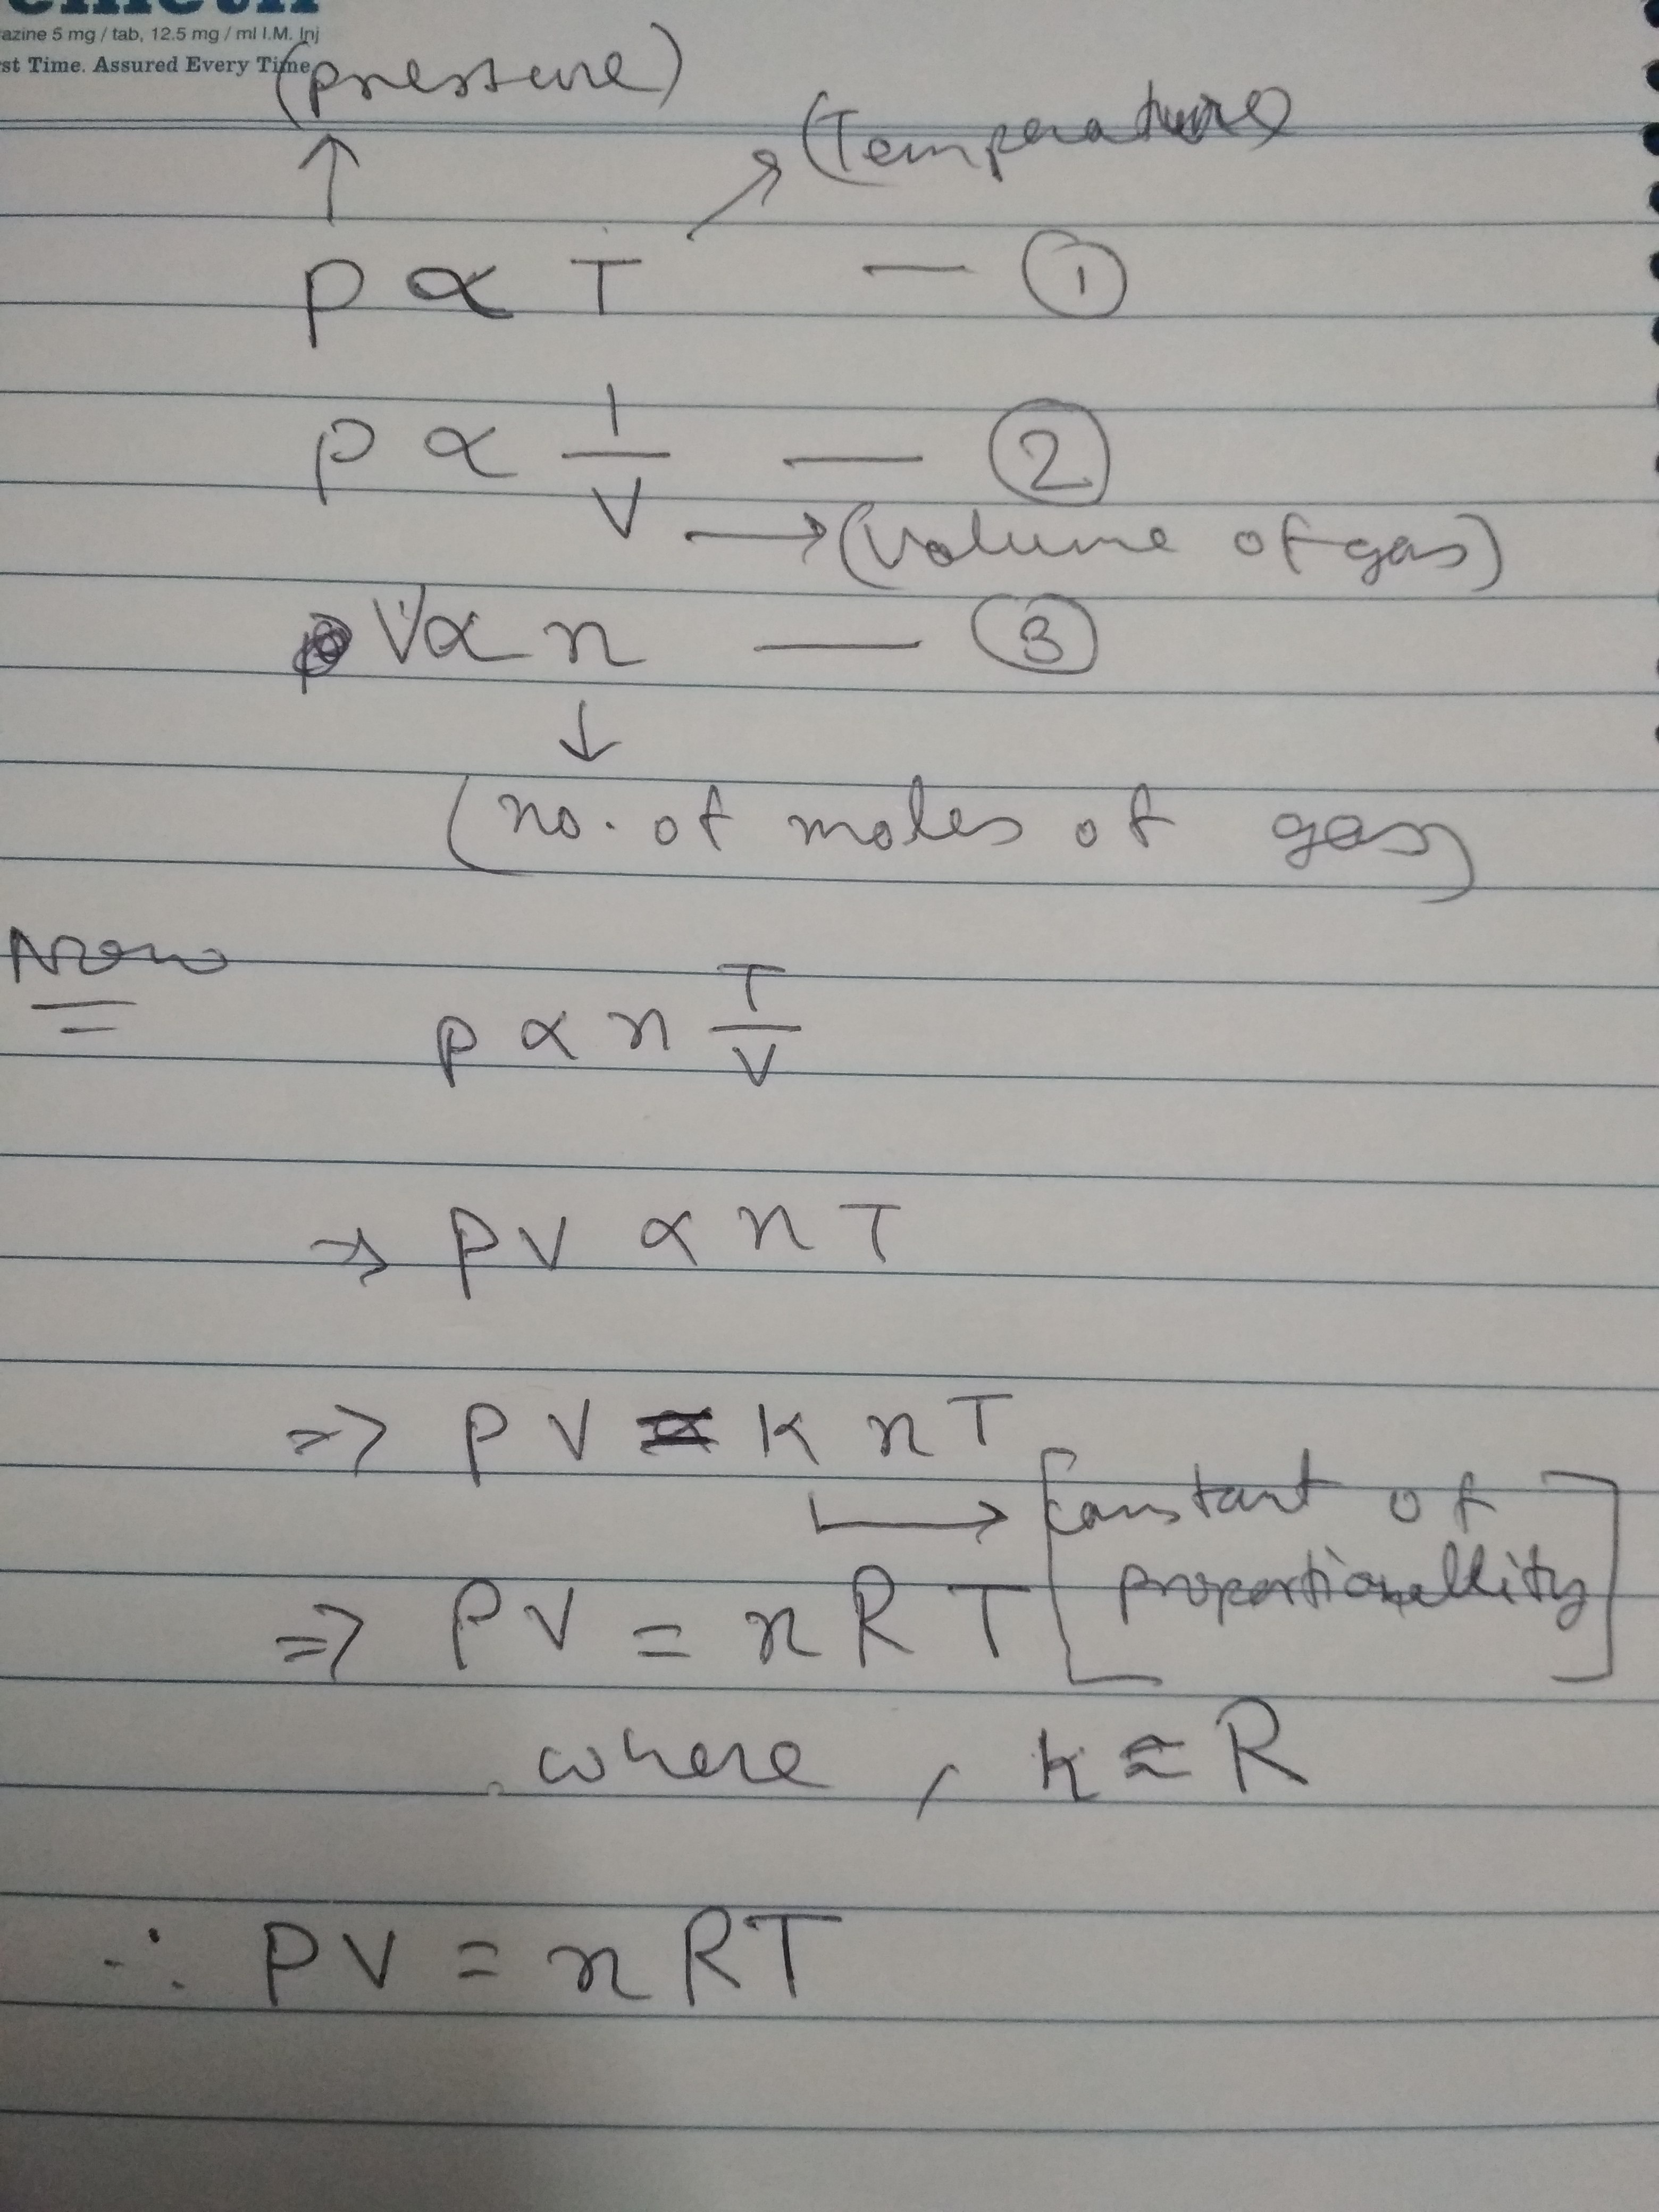 azine 5 mg / tab, 12.5 mg / ml I.M. Inj
st Time. Assured Every Time
(pressure)
(Temperature)
P ∝ T — ①
P ∝ 1/V — ②
→ (volume of gas)
V ∝ n — ③
↓
(no. of moles of gas)
Now
P ∝ n T/V
⇒ PV ∝ nT
⇒ PV = k nT
→ [Constant of
proportionallity]
⇒ PV = nRT
where, k = R
∴ PV = nRT